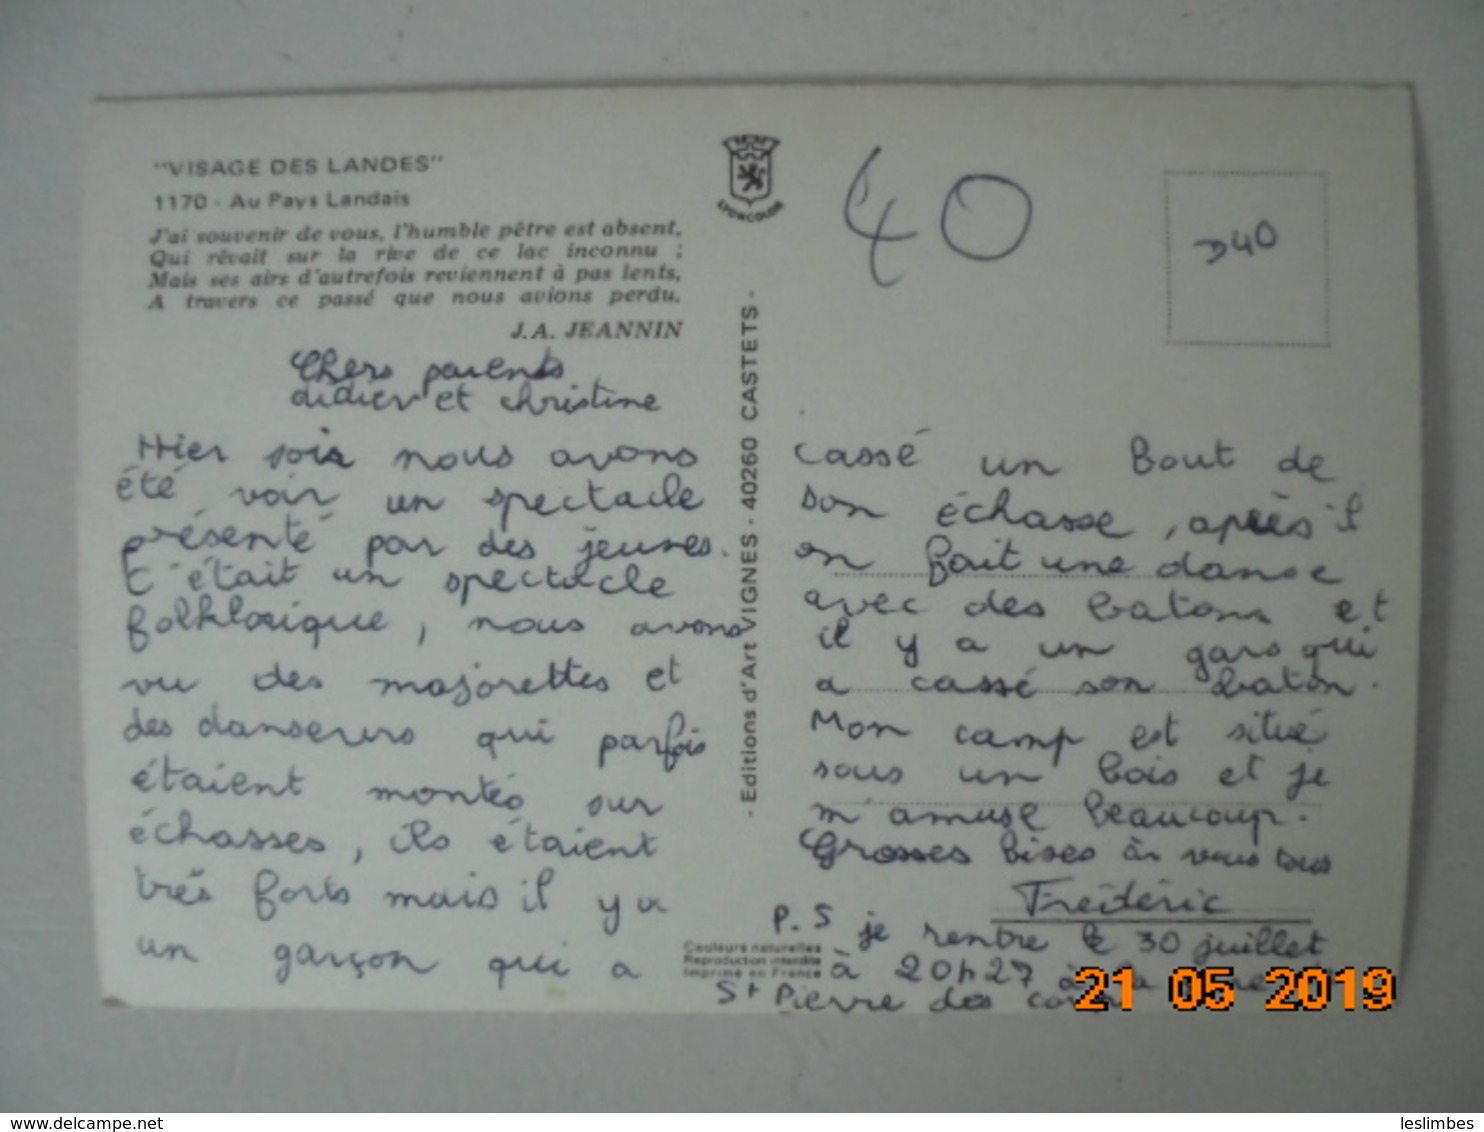 "VISAGE DES LANDES"
1170 - Au Pays Landais
J'ai souvenir de vous, l'humble pêtre est absent,
Qui rêvait sur la rive de ce lac inconnu ;
Mais ses airs d'autrefois reviennent à pas lents,
A travers ce passé que nous avions perdu.
J.A. JEANNIN
Chers parents
didier et christine
Hier soir nous avons
été voir un spectacle
présenté par des jeunes.
C'était un spectacle
folklorique, nous avons
vu des majorettes et
des danseurs qui parfois
étaient montés sur
échasses, ils étaient
très forts mais il y a
un garçon qui a
- Editions d'Art VIGNES - 40260 CASTETS -
LYONCOLOR
40
D40
cassé un bout de
son échasse, après il
on fait une danse
avec des batons et
il y a un gars qui
a cassé son baton.
Mon camp est situé
sous un bois et je
m'amuse beaucoup.
Grosses bises à vous tous
Frédéric
P.S je rentre le 30 juillet
à 20h27 à la
St Pierre des
Couleurs naturelles
Reproduction interdite
Imprimé en France
21 05 2019
www.delcampe.net
leslimbes